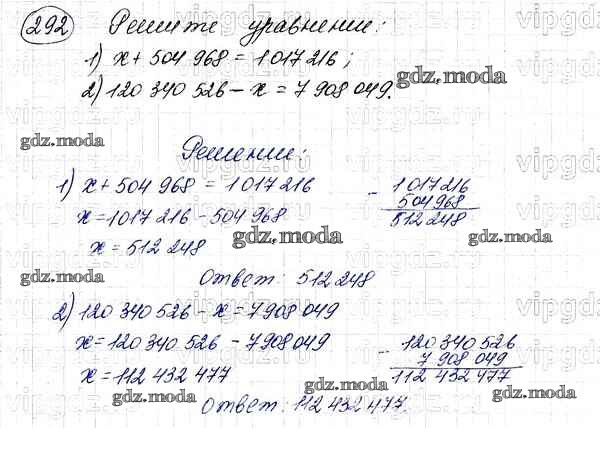 292 Решите уравнения:
1) x + 504 968 = 1 017 216;
2) 120 340 526 - x = 7 908 049.
Решение:
1) x + 504 968 = 1 017 216
x = 1 017 216 - 504 968
x = 512 248
- 1 017 216
504 968
512 248
Ответ: 512 248
2) 120 340 526 - x = 7 908 049
x = 120 340 526 - 7 908 049
x = 112 432 477
- 120 340 526
7 908 049
112 432 477
Ответ: 112 432 477.
gdz.moda
gdz.moda
gdz.moda
gdz.moda
gdz.moda
gdz.moda
gdz.moda
gdz.moda
vipgdz.ru